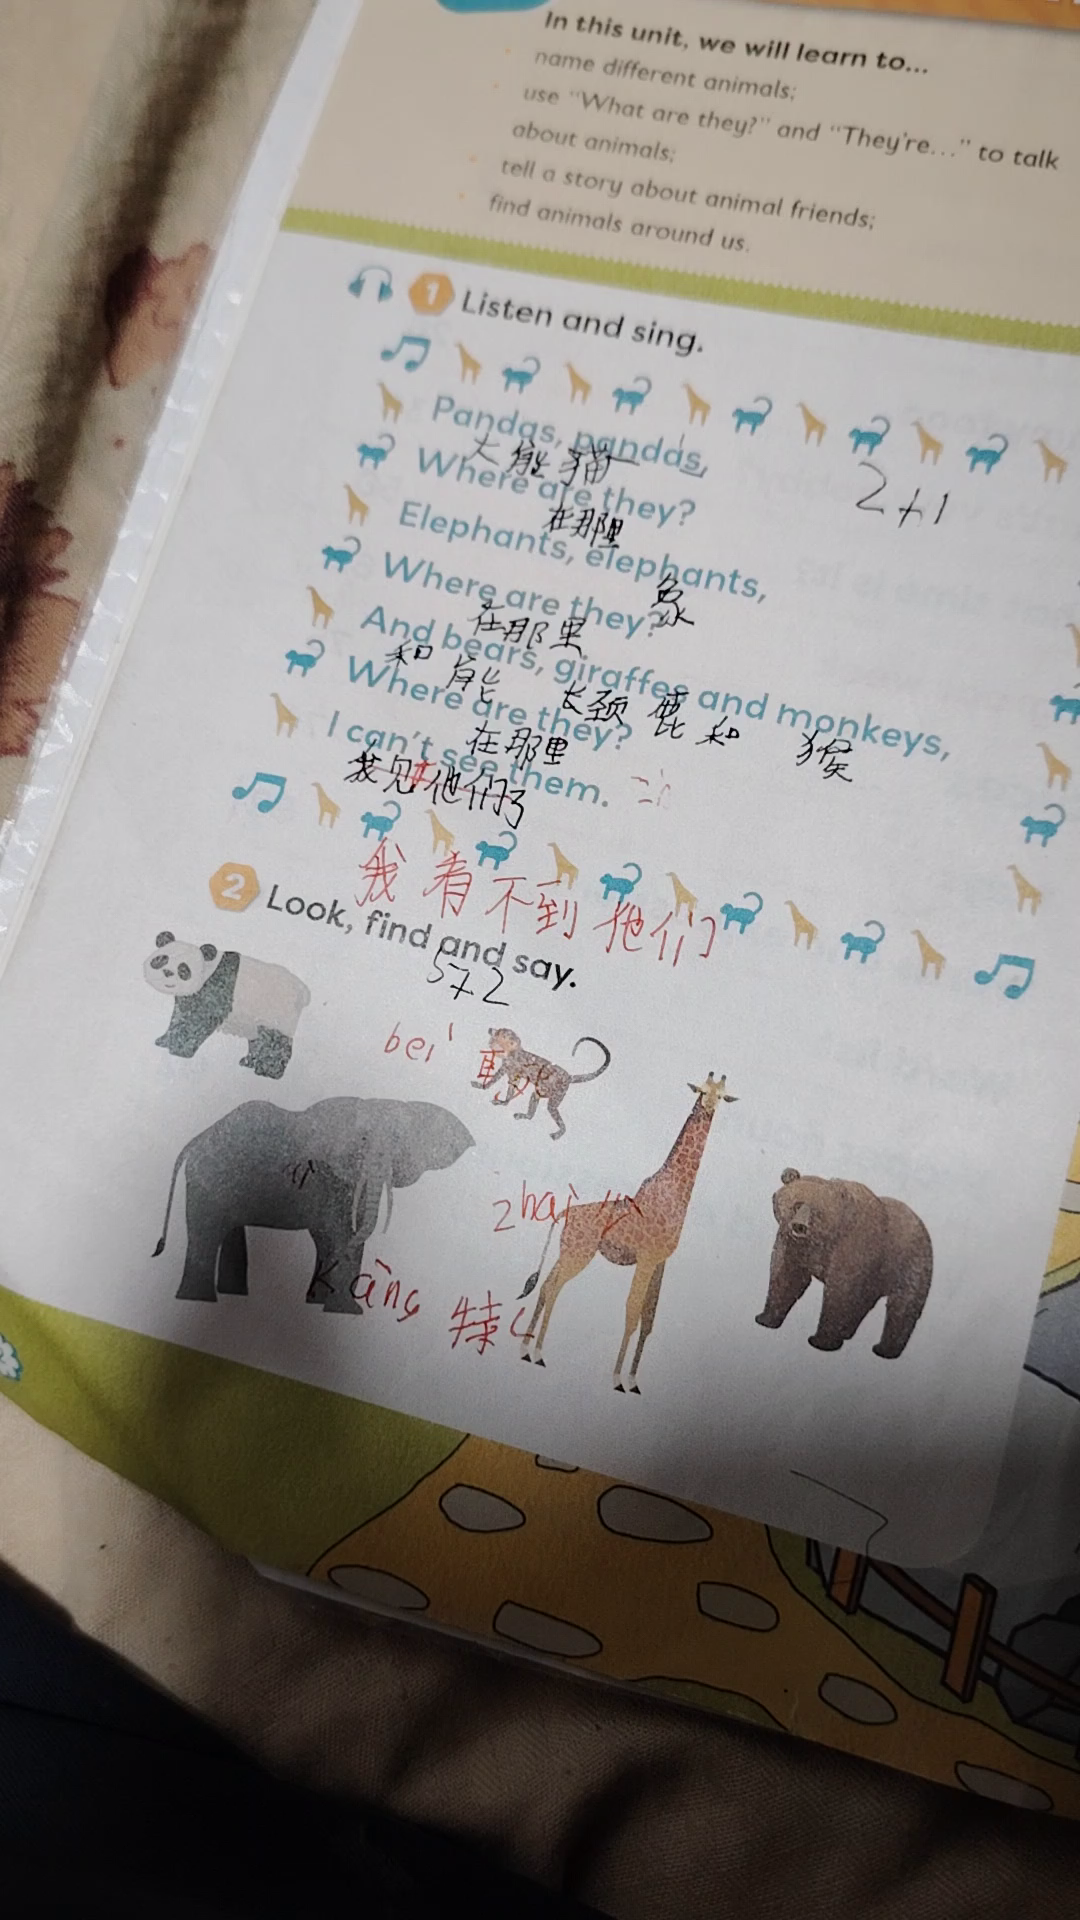 In this unit, we will learn to...
name different animals;
use “What are they?” and “They're...” to talk
about animals;
tell a story about animal friends;
find animals around us.
1 Listen and sing.
Pandas, pandas,
大熊猫
2+1
Where are they?
在那里
Elephants, elephants,
象
Where are they?
在那里
And bears, giraffes and monkeys,
和 熊 长颈鹿 和 猴
Where are they?
在那里
I can't see them.
我见 他们了
我看不到他们
2 Look, find and say.
5+2
bei
zhai
Kang